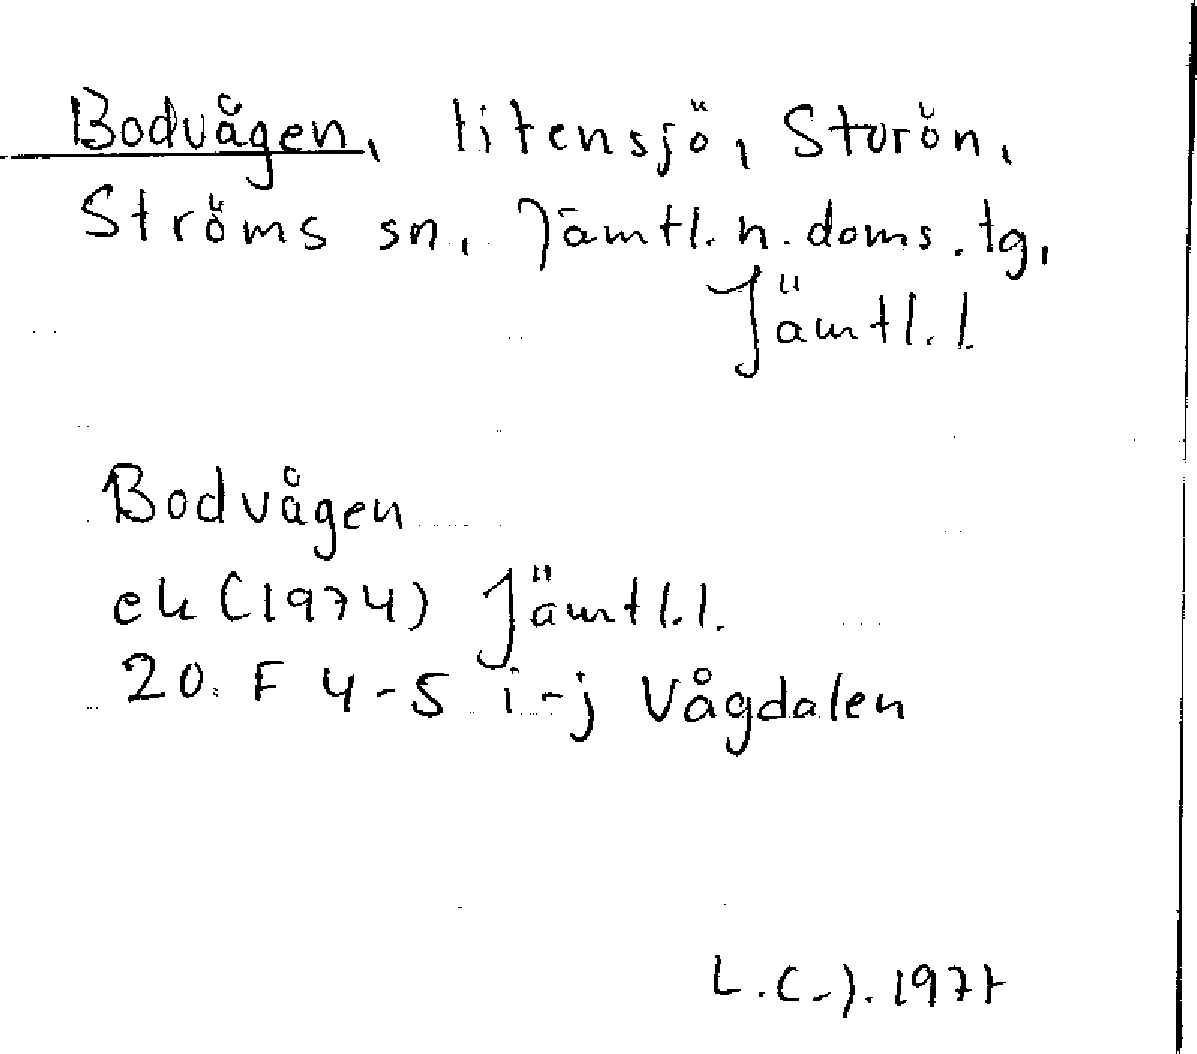 Bodvågen, litensjö, Storön,
Ströms sn, Jämtl. n. doms. tg,
Jämtl. l.
Bodvågen
ek (1974) Jämtl. l.
20. F 4-5 i-j Vågdalen
L.C-J. 1977